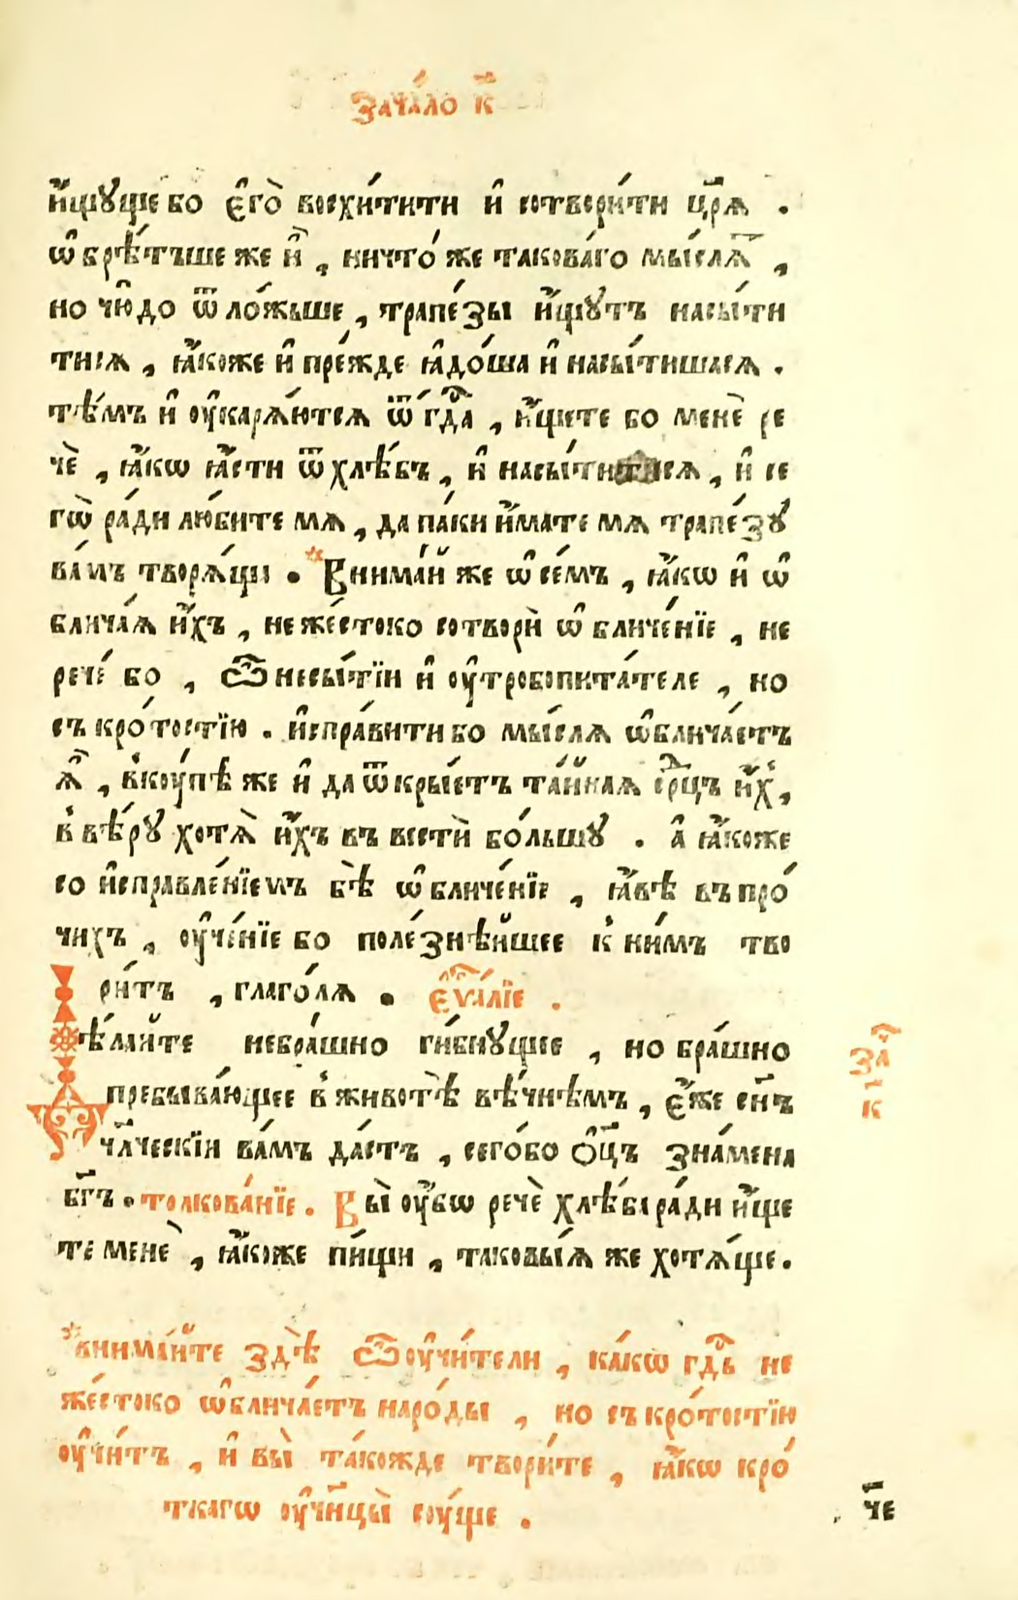 Зача́ло к҃
и҆́щꙋще бо є҆го̀ восхи́тити и҆ сотвори́ти цр҃ѧ .
ѡ҆брѣ́тъше же и҆̀ , ничто́ же такова́го мы́слѧ ,
но чю҆до ѿло́жьше , трапе́зы и҆́щꙋтъ насы́ти
тисѧ , ꙗ҆́коже и҆ пре́жде ꙗ҆до́ша и҆ насы́тишасѧ .
тѣ́мъ и҆ оу҆карѧ́ютсѧ ѿ гд҇а , и҆́щете бо менѐ ре
чѐ , ꙗ҆́кѡ ꙗ҆́сти ѿ хлѣ́бъ , и҆ насы́титисѧ , и҆ се
гѡ̀ ра́ди лю́бите мѧ , да па́ки и҆́мате мѧ трапе́зꙋ
ва́мъ творѧ́щи . * Внима́й же ѡ҆ се́мъ , ꙗ҆́кѡ и҆ ѡ҆
блича́ѧ и҆́хъ , не же́стоко сотворѝ ѡ҆бличе́нїе , не
рече́ бо , Ѽ несы́тїи и҆ оу҆тробопита́теле , но
съ кро́тостїю . и҆спра́вити бо мы́слѧ ѡ҆блича́етъ
ѧ҆̀ , вкоу́пѣ же и҆ да ѿкры́етъ та́йнаѧ ср҇цъ и҆́х ,
в вѣ́рꙋ хотѧ̀ и҆́хъ въ вестѝ бо́льшꙋ . а҆ ꙗ҆́коже
со и҆справле́нїемъ бѣ̀ ѡ҆бличе́нїе , ꙗ҆́вѣ въ про́
чихъ , оу҆че́нїе бо поле́знѣйшее к ни́мъ тво
ри́тъ , глаго́лѧ . Є҆ѵⷢ҇а́лїе .
Дѣ́лайте небра́шно ги́бнꙋщее , но бра́шно
пребыва́ющее в животѣ̀ вѣ́чнѣмъ , є҆́же сн҃ъ
чл҃ческїи ва́мъ да́стъ , сего́бо ѻ҆ц҃ъ зна́мена
бг҃ъ . толкова́нїе . Вы̀ оу҆́бѡ речѐ хлѣ́ба ра́ди и҆́ще
те менѐ , ꙗ҆́коже пи́щи , таковы́ѧ же хотѧ́ще .
за҇
к҃
* внима́йте здѣ̀ ѽ оу҆чи́тели , ка́кѡ гд҇ь не
же́стоко ѡ҆блича́етъ наро́ды , но съ кро́тостїю
оу҆чи́тъ , и҆ вы̀ та́кожде твори́те , ꙗ҆́кѡ кро́
ткагѡ оу҆чн҃цы̀ соу́ще .
че҃